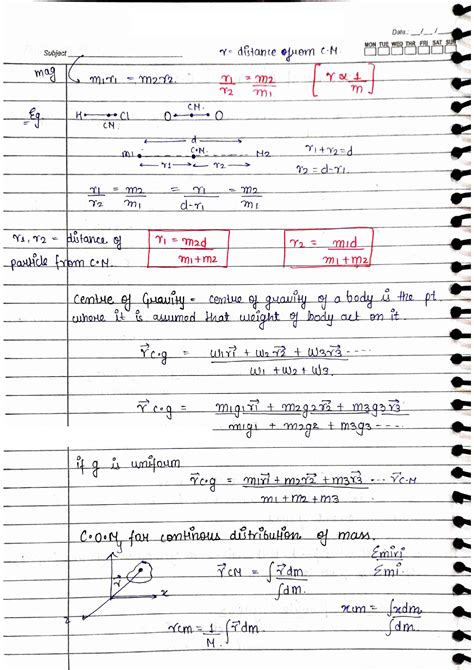 Date: __/__/__
MON TUE WED THR FRI SAT SUN
Subject
r = distance from C.M.
mag
m1r1 = m2r2. r1/r2 = m2/m1 [r ∝ 1/m]
Eg. H Cl CM. O CM. O
d
m1 C.M. M2 r1+r2=d
r1 r2 r2=d-r1.
r1/r2 = m2/m1 = r1/d-r1 = m2/m1
r1, r2 = distance of particle from C.M.
r1 = m2d/m1+m2 r2 = m1d/m1+m2
Centre of Gravity = centre of gravity of a body is the pt.
where it is assumed that weight of body act on it.
r⃗c.g = w1r⃗1 + w2r⃗2 + w3r⃗3 ..../w1 + w2 + w3.
r⃗c.g = m1g1r⃗1 + m2g2r⃗2 + m3g3r⃗3/m1g1 + m2g2 + m3g3....
if g is uniform
r⃗c.g = m1r⃗1 + m2r⃗2 + m3r⃗3 .../m1 + m2 + m3 r⃗C.M
C.O.M for continous distribution of mass.
y r⃗ x z
r⃗CM = ∫r⃗dm/∫dm. Σmiri/Σmi.
xcm = ∫xdm/∫dm
rcm = 1/M ∫r⃗dm.